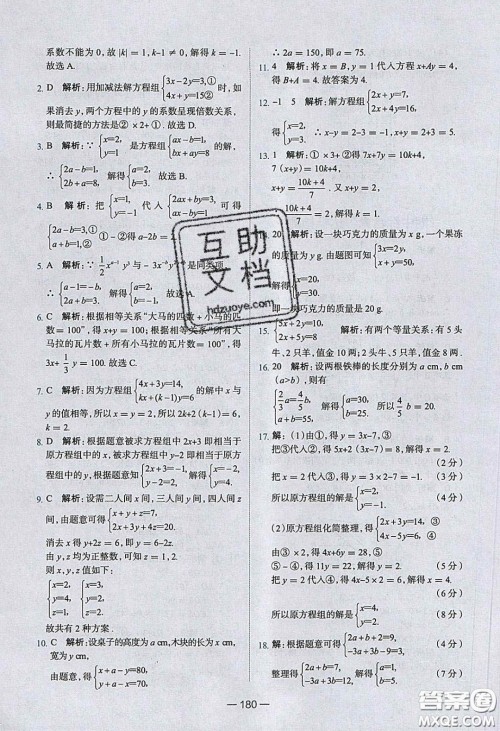 系数不能为 0，故 |k| = 1，k-1 ≠ 0，解得 k = -1.
故选 A.
2. D 解析：用加减法解方程组{3x-2y=3,① 4x+y=15② 时，如
果消去 y，两个方程中的 y 的系数呈现倍数关系，
则最简捷的方法是② ×2+① . 故选 D.
3. B 解析：∵ {x=2, y=1 是方程组{ax-by=1, bx+ay=8 的解，
∴ {2a-b=1, 2b+a=8, 解得{a=2, b=3.
4. B 解析：把 {x=1, y=-1 代入
① - ② 得 a-2b =
5. A 解析：∵
是同类项，
∴ {a-1=-b, 2a-b=1, 解得
故选 A.
6. C 解析：根据相等关系“大马的匹数 + 小马的匹
数 = 100”，得
根据相等关系“所有大
马拉的瓦片数 + 所有小马拉的瓦片数 = 100”，得
3x+ 1/3 y = 100. 故选 C.
7. C 解析：因为方程组{4x+3y=14, kx+(k-1)y=6 的解中 x 与
y 的值相等，所以 x = y = 2，所以 2k+2(k-1) = 6，
k = 2.
8. D 解析：根据题意被求方程组中 2x+3 即相当于
原方程组中的 x，被求方程组中 y-2 即相当于原
方程组中的
9. C 解析：设需二人间 x 间，三人间 y 间，四人间 z
间，由题意可得{x+y+z=7, 2x+3y+4z=20.
消去 x 得 y+2z = 6，变形为 y = 6-2z.
由 y，z 均为正整数，可知 z = 1 或 z = 2.
所以 x，y，z 值如下：
{x=2, y=4, z=1; {x=3, y=2, z=2.
故共有 2 种方案 .
10. C 解析：设桌子的高度为 a cm，木块的长为 x cm，
宽为 y cm.
由题意，得{x+a-y=80, y+a-x=70.
∴ 2a = 150，即 a = 75.
11. 4 解析：将 x = B，y = 1 代入方程 x+Ay = 4，
得 B+A = 4. 故答案为 4.
12. -1 5 解析：解方程组{2x+y=7, 2x+4y=16,
得{x=2, y=3, 所以 x-y = -1，x+y = 2+3 = 5.
13. 1 解析：① ×3+② 得 7x+7y = 10k+4，
7（x+y）= 10k+4，
x+y = (10k+4)/7. 又 ∵ x+y = 2，
解得 k = 1.
14. 20 解析：设一块巧克力的质量为 x g，一个果冻
的质量为 y g. 由题图可知{3x=2y, x+y=50,
解得
即一块巧克力的质量是 20 g.
15. {5x+2y=10, 2x+5y=8 解析：有两个等量关系：有 5 头
牛、2 只羊，值金 10 两；2 头牛、5 只羊，值金 8 两.
16. 20 解析：设两根铁棒的长度分别为 a cm，b cm
(a>b)，则有{2/3 a=4/5 b, a+b=55, 解得{a=30, b=25, 所以 4/5 b = 20.
17. 解：(1)由①，得 y = 3x-7，③
把③代入②，得 5x+2（3x-7）= 8，	（2 分）
解得 x = 2，把 x = 2 代入③，得 y = 3×2-7 = -1.
所以原方程组的解是{x=2, y=-1. （4 分）
(2)原方程组化简整理，得{2x+3y=14,③ 4x-5y=6,④
由③ ×2，得 4x+6y = 28，⑤
⑤ - ④，得 11y = 22，解得 y = 2. （5 分）
把 y = 2 代入④，得 4x-5×2 = 6， （6 分）
解得 x = 4，
所以原方程组的解是{x=4, y=2. （8 分）
18. 解：根据题意可得{2a+2+b=2+9, -3a+b=9-3, （4 分）
整理得{2a+b=9, -3a+b=... （7 分）
— 180 —
互助
文档
hdzuoye.com
答案圈
MXQE.COM